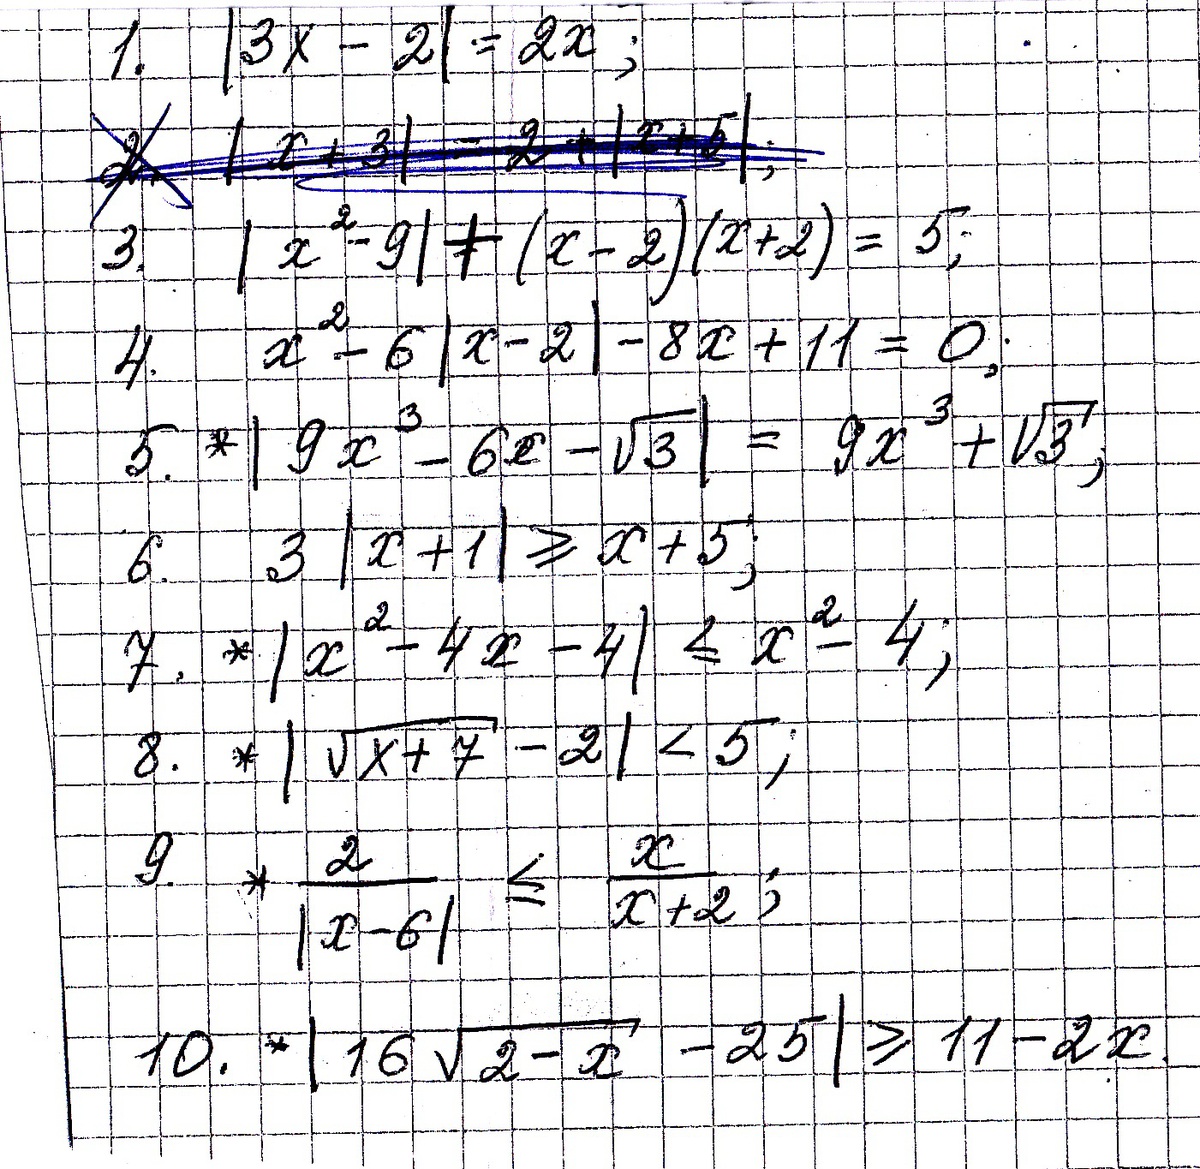 1. |3x - 2| = 2x;
2. |x + 3| = 2 + |x + 5|;
3. |x² - 9| + (x - 2)(x + 2) = 5;
4. x² - 6|x - 2| - 8x + 11 = 0;
5. *|9x³ - 6x - √3| = 9x³ + √3;
6. 3|x + 1| ⩾ x + 5;
7. *|x² - 4x - 4| ≤ x² - 4;
8. *|√(x + 7) - 2| < 5;
9. * 2/|x - 6| ≤ x/(x + 2);
10. *|16√(2 - x) - 25| ⩾ 11 - 2x.